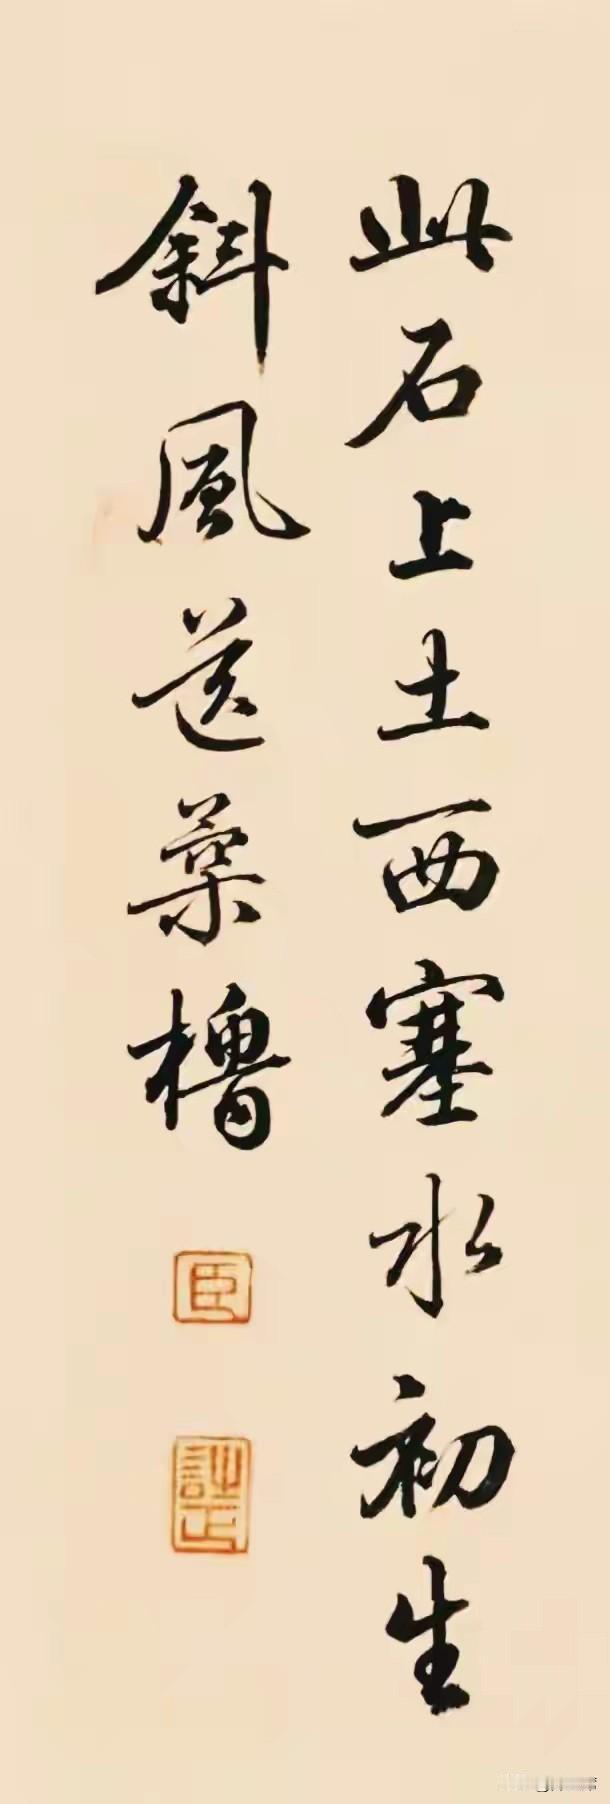 此石上土西塞水初生
斜風送藥櫓
臣